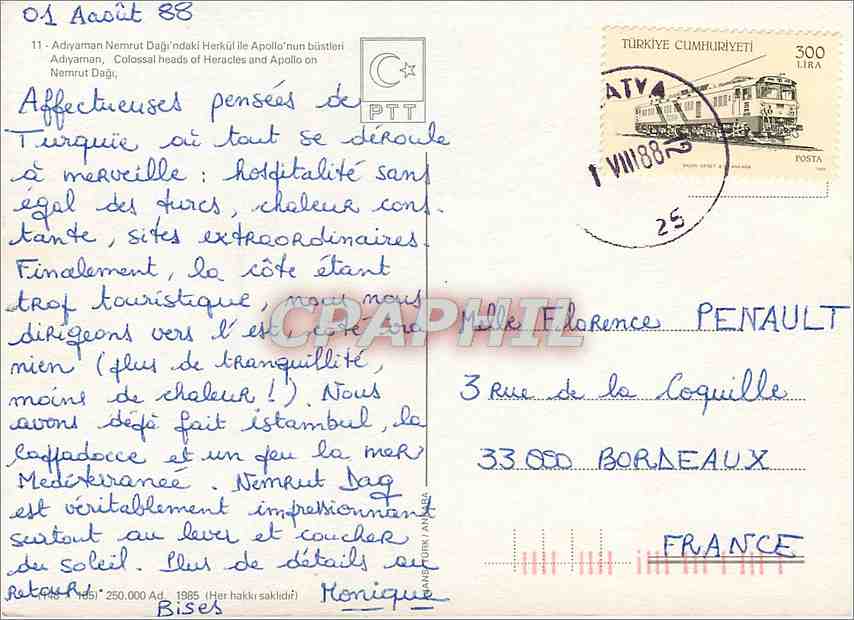 01 Aaoût 88
11 - Adıyaman Nemrut Dağı'ndaki Herkül ile Apollo'nun büstleri
Adıyaman, Colossal heads of Heracles and Apollo on
Nemrut Dağı,
PTT
TÜRKİYE CUMHURİYETİ
300
LİRA
POSTA
ATVA
1 VIII 88 12
25
Affectueuses pensées de
Turquie où tout se déroule
à merveille : hospitalité sans
égal des turcs, chaleur cons-
tante, sites extraordinaires.
Finalement, la côte étant
trop touristique, nous nous
dirigeons vers l'est, côté ira
nien (plus de tranquillité,
moins de chaleur !). Nous
avons déjà fait istambul, la
Cappadocce et un peu la mer
Mediterraneé. Nemrut Dag
est véritablement impressionnant
surtout au lever et coucher
du soleil. Plus de détails au
retours.
Bises
Monique
250.000 Ad. 1985 (Her hakkı saklıdır)
Melle Florence PENAULT
3 rue de la Coquille
33 000 BORDEAUX
FRANCE
CPAPHIL